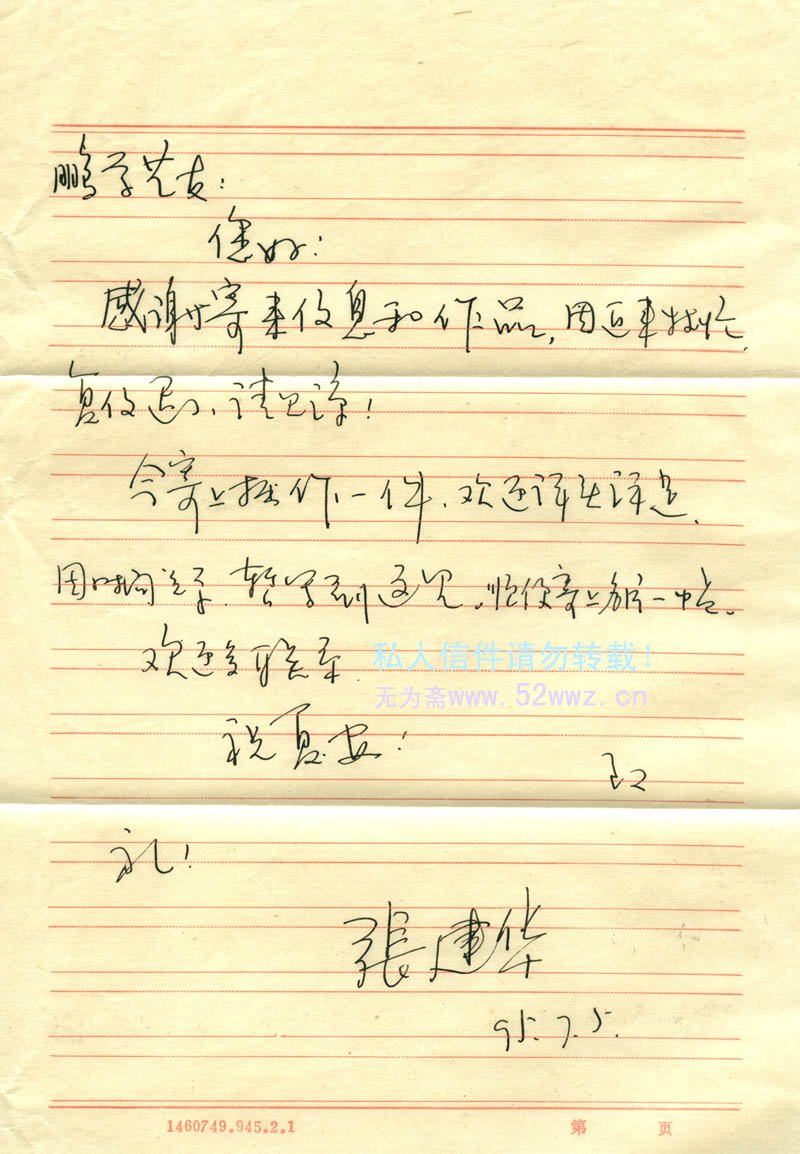 鹏学艺友:
您好:
感谢寄来信息和作品,因近来较忙,
复信迟了、请见谅!
今寄上拙作一件、欢迎评头评足、
因时间关系、暂写到这儿。顺便寄上名片一帖。
欢迎多联系.
私人信件请勿转载!
无为斋www.52wwz.cn
祝夏安!
礼!
張建华
95.7.5.
1460749.945.2.1
第 页